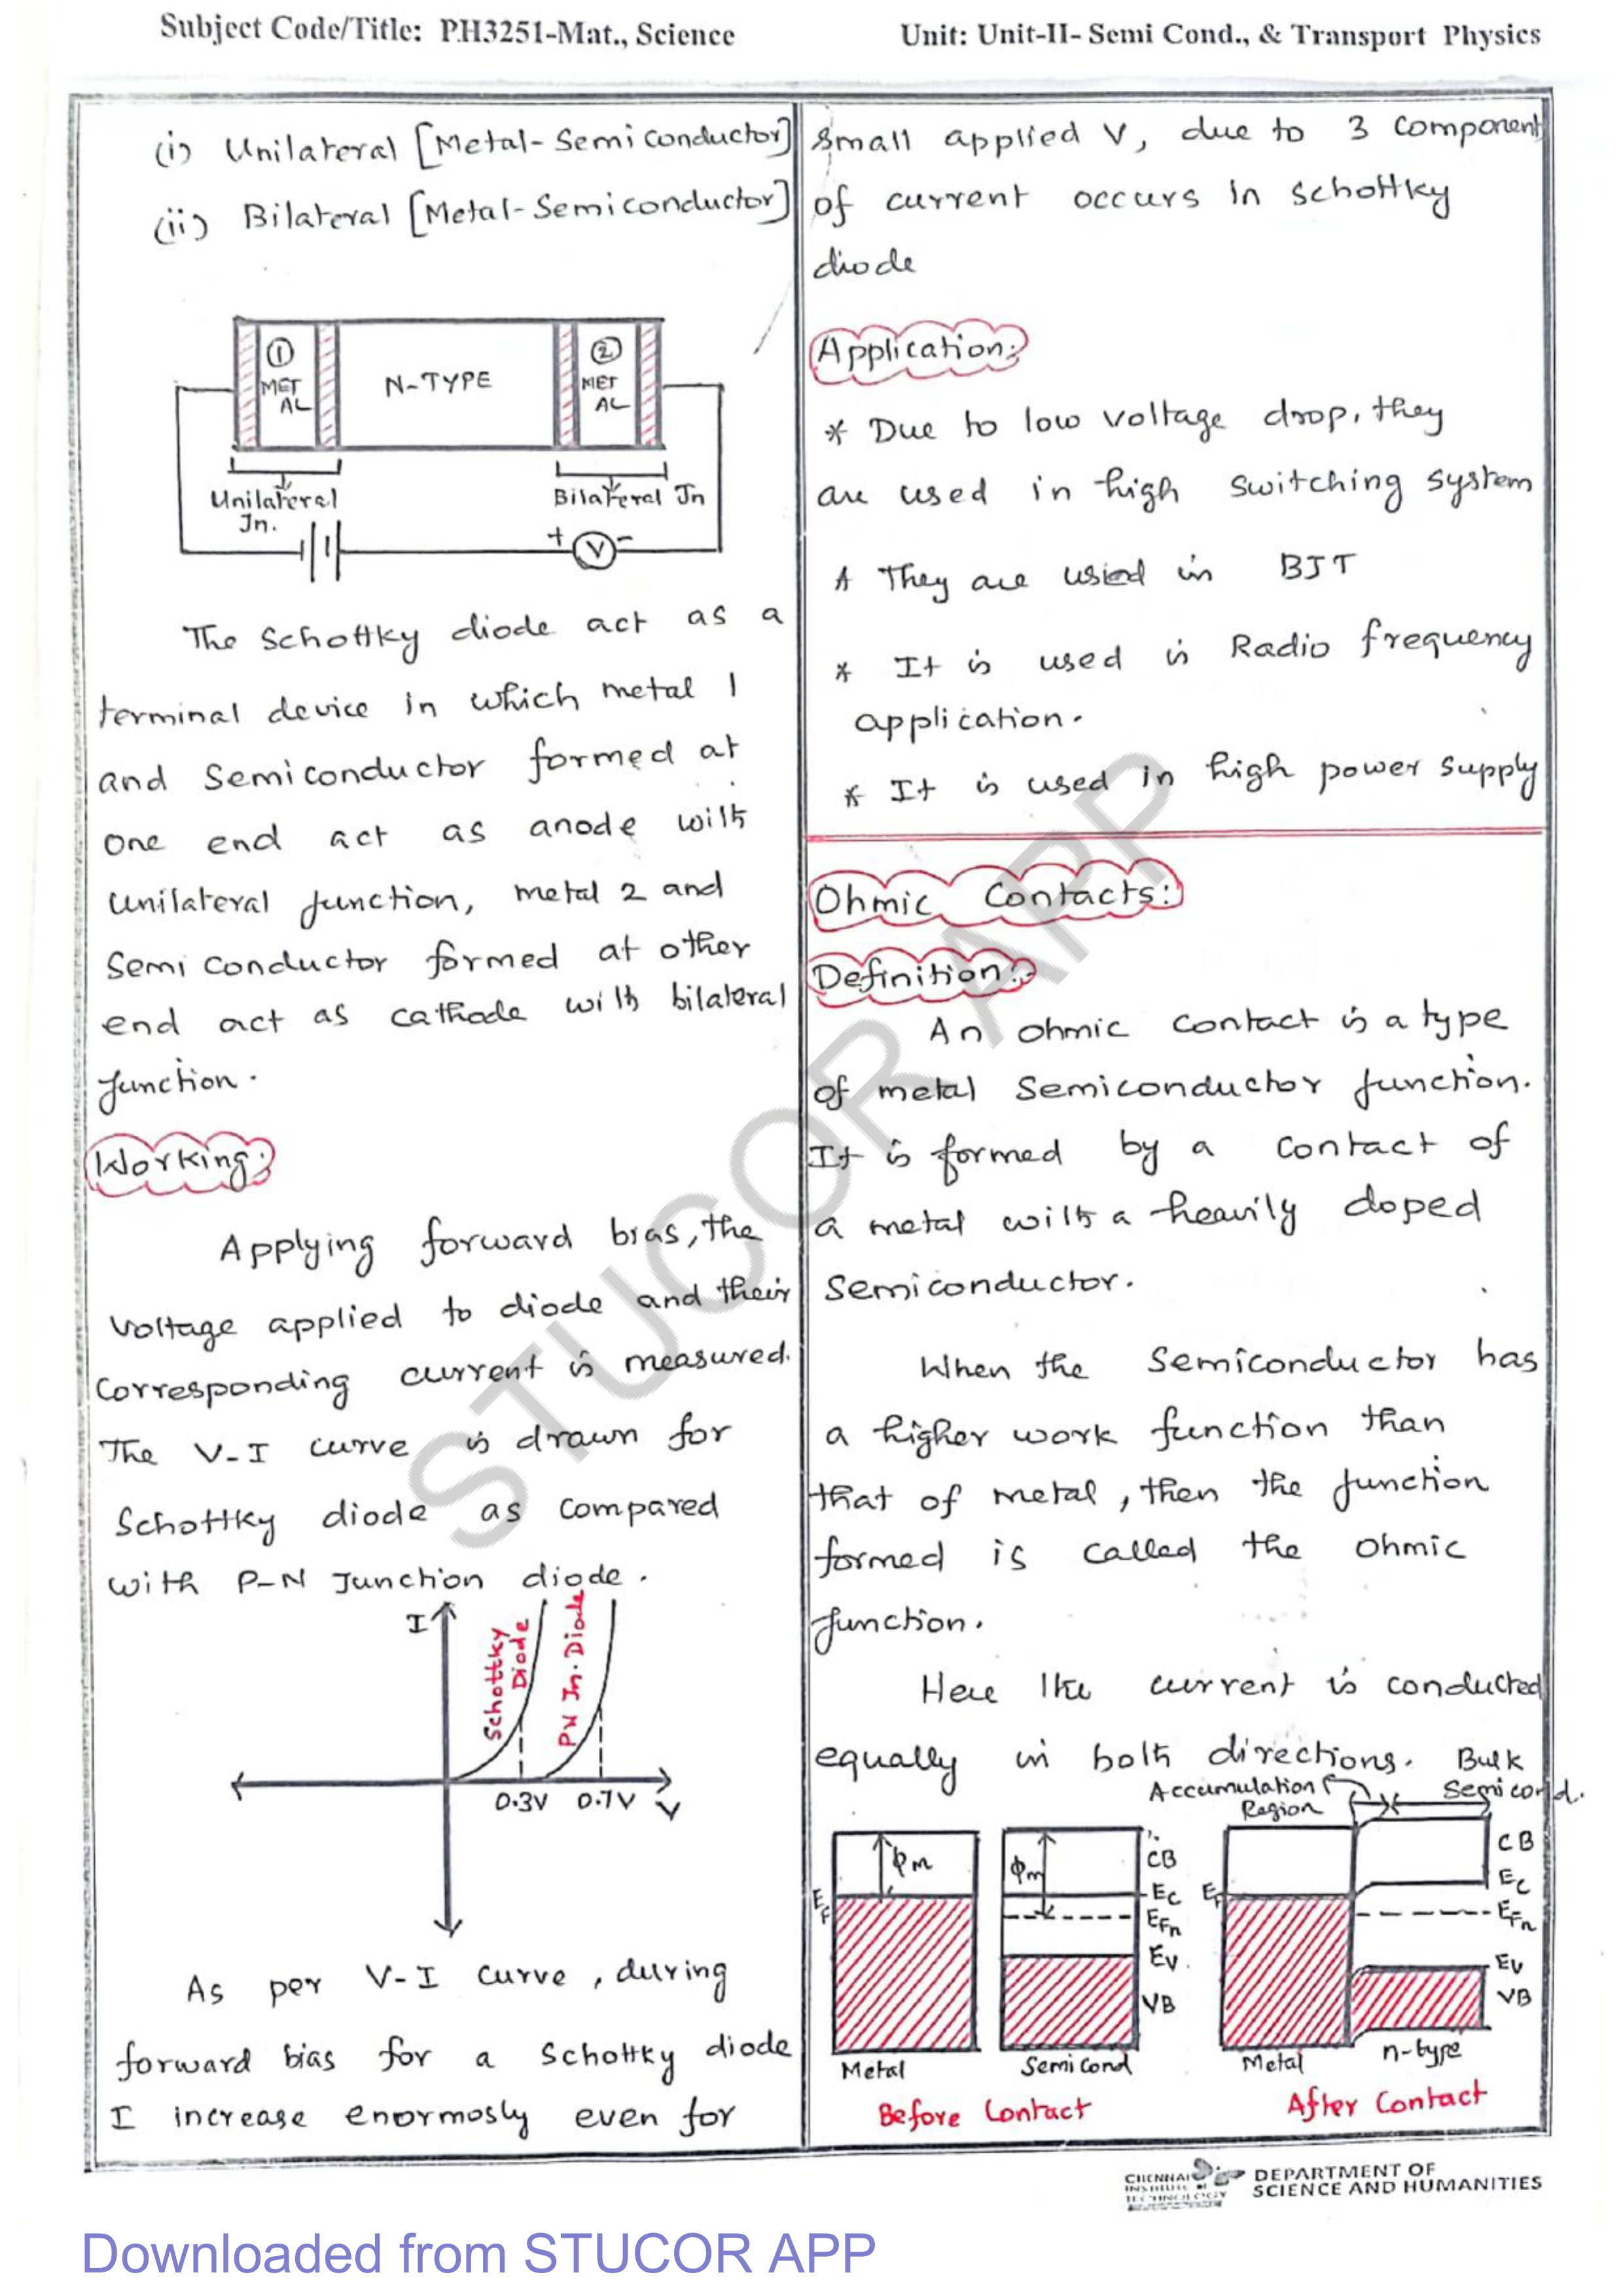 Subject Code/Title: PH3251-Mat., Science
Unit: Unit-II- Semi Cond., & Transport Physics
(i) Unilateral [Metal-Semiconductor]
(ii) Bilateral [Metal-Semiconductor]
① METAL
N-TYPE
② METAL
Unilateral Jn.
Bilateral Jn
+ V -
The Schottky diode act as a
terminal device in which metal 1
and Semiconductor formed at
one end act as anode with
Unilateral junction, metal 2 and
Semiconductor formed at other
end act as cathode with bilateral
junction.
Working:
Applying forward bias, the
Voltage applied to diode and their
corresponding current is measured.
The V-I curve is drawn for
Schottky diode as compared
with P-N Junction diode.
I
Schottky Diode
PN Jn. Diode
0.3V 0.7V V
As per V-I curve, during
forward bias for a Schottky diode
I increase enormosly even for
small applied V, due to 3 component
of current occurs in schottky
diode
Application:
* Due to low voltage drop, they
are used in high switching system
* They are used in BJT
* It is used in Radio frequency
application.
* It is used in high power supply
Ohmic Contacts:
Definition:
An ohmic contact is a type
of metal semiconductor junction.
It is formed by a contact of
a metal with a heavily doped
Semiconductor.
When the Semiconductor has
a higher work function than
that of metal, then the junction
formed is called the ohmic
junction.
Here the current is conducted
equally in both directions.
Bulk Semicond.
Accumulation Region
EF
ϕm
ϕm
CB
Ec
EFn
Ev
VB
EF
CB
Ec
EFn
Ev
VB
Metal
Semicond
Metal
n-type
Before Contact
After Contact
STUCOR APP
CHENNAI INSTITUTE OF TECHNOLOGY
DEPARTMENT OF
SCIENCE AND HUMANITIES
Downloaded from STUCOR APP